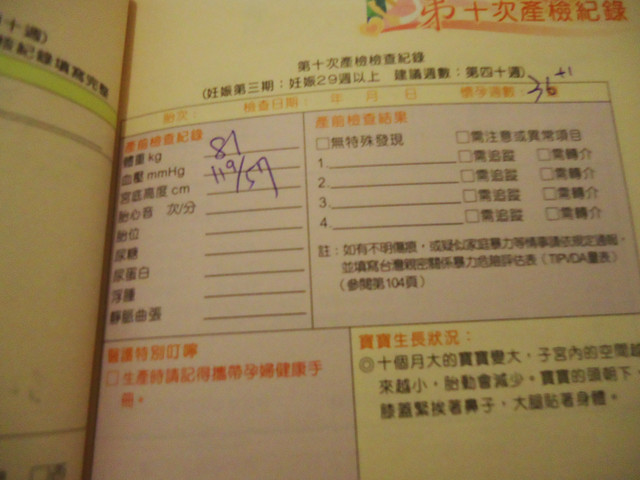 第十次產檢紀錄
十週)
檢紀錄填寫完整
第十次產檢檢查紀錄
(妊娠第三期：妊娠29週以上 建議週數：第四十週)
胎次： 檢查日期： 年 月 日 懷孕週數：36+1
產前檢查紀錄
體重 kg 81
血壓 mmHg 119/57
宮底高度 cm
胎心音 次/分
胎位
尿糖
尿蛋白
浮腫
靜脈曲張
產前檢查結果
□無特殊發現 □需注意或異常項目
1. □需追蹤 □需轉介
2. □需追蹤 □需轉介
3. □需追蹤 □需轉介
4. □需追蹤 □需轉介
註：如有不明傷痕，或疑似家庭暴力等情事請依規定通報，
並填寫台灣親密關係暴力危險評估表（TIPVDA量表）
(參閱第104頁)
醫護特別叮嚀
□生產時請記得攜帶孕婦健康手
冊。
寶寶生長狀況：
◎十個月大的寶寶變大，子宮內的空間越
來越小，胎動會減少。寶寶的頭朝下，
膝蓋緊挨著鼻子，大腿貼著身體。
週